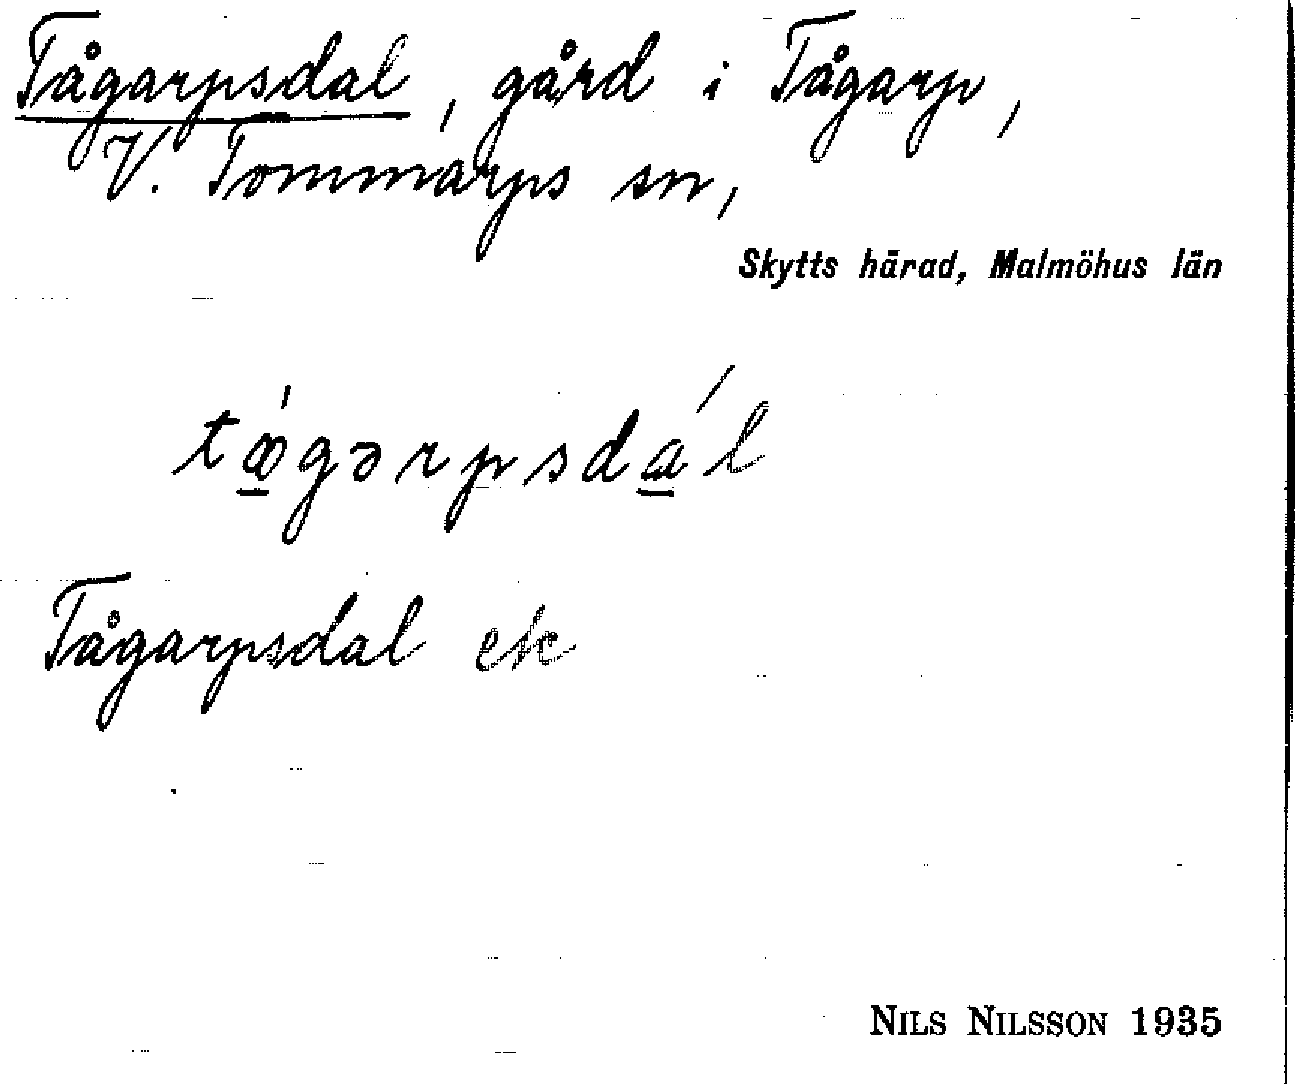 Tågarpsdal, gård i Tågarp,
V. Tommarps sn,
Skytts härad, Malmöhus län
Tågarpsdal etc
NILS NILSSON 1935